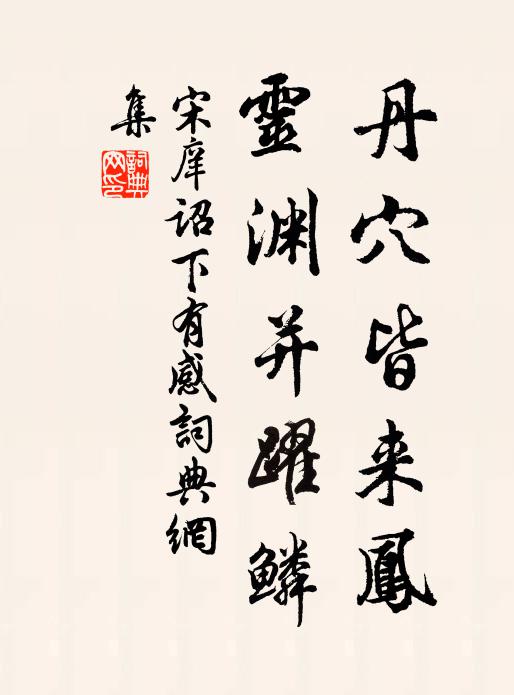 丹穴皆来鳳
靈渊并躍鱗
宋庠诏下有感詞典網
集
詞典网印